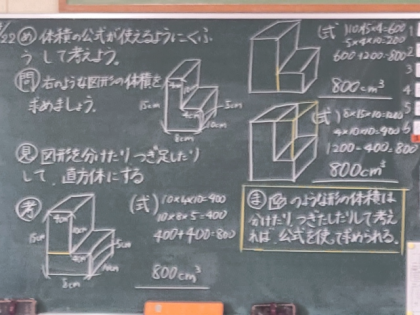 22 め 体積の公式が使えるようにくふ
うして考えよう。
問 右のような図形の体積を
求めましょう。
15cm
4cm
10cm
5cm
10cm
8cm
見 図形を分けたり つぎ足したり
して、直方体にする
考
4cm
10cm
15cm
5cm
8cm
(式) 10×4×10=400
10×8×5=400
400+400=800
800cm³
(式) 10×15×4=600
5×4×10=200
600+200=800
800cm³
(式) 8×15×10=1200
4×10×10=400
1200-400=800
800cm³
ま のような形の体積は
分けたり、つぎたしたりして考え
れば、公式を使って求められる。